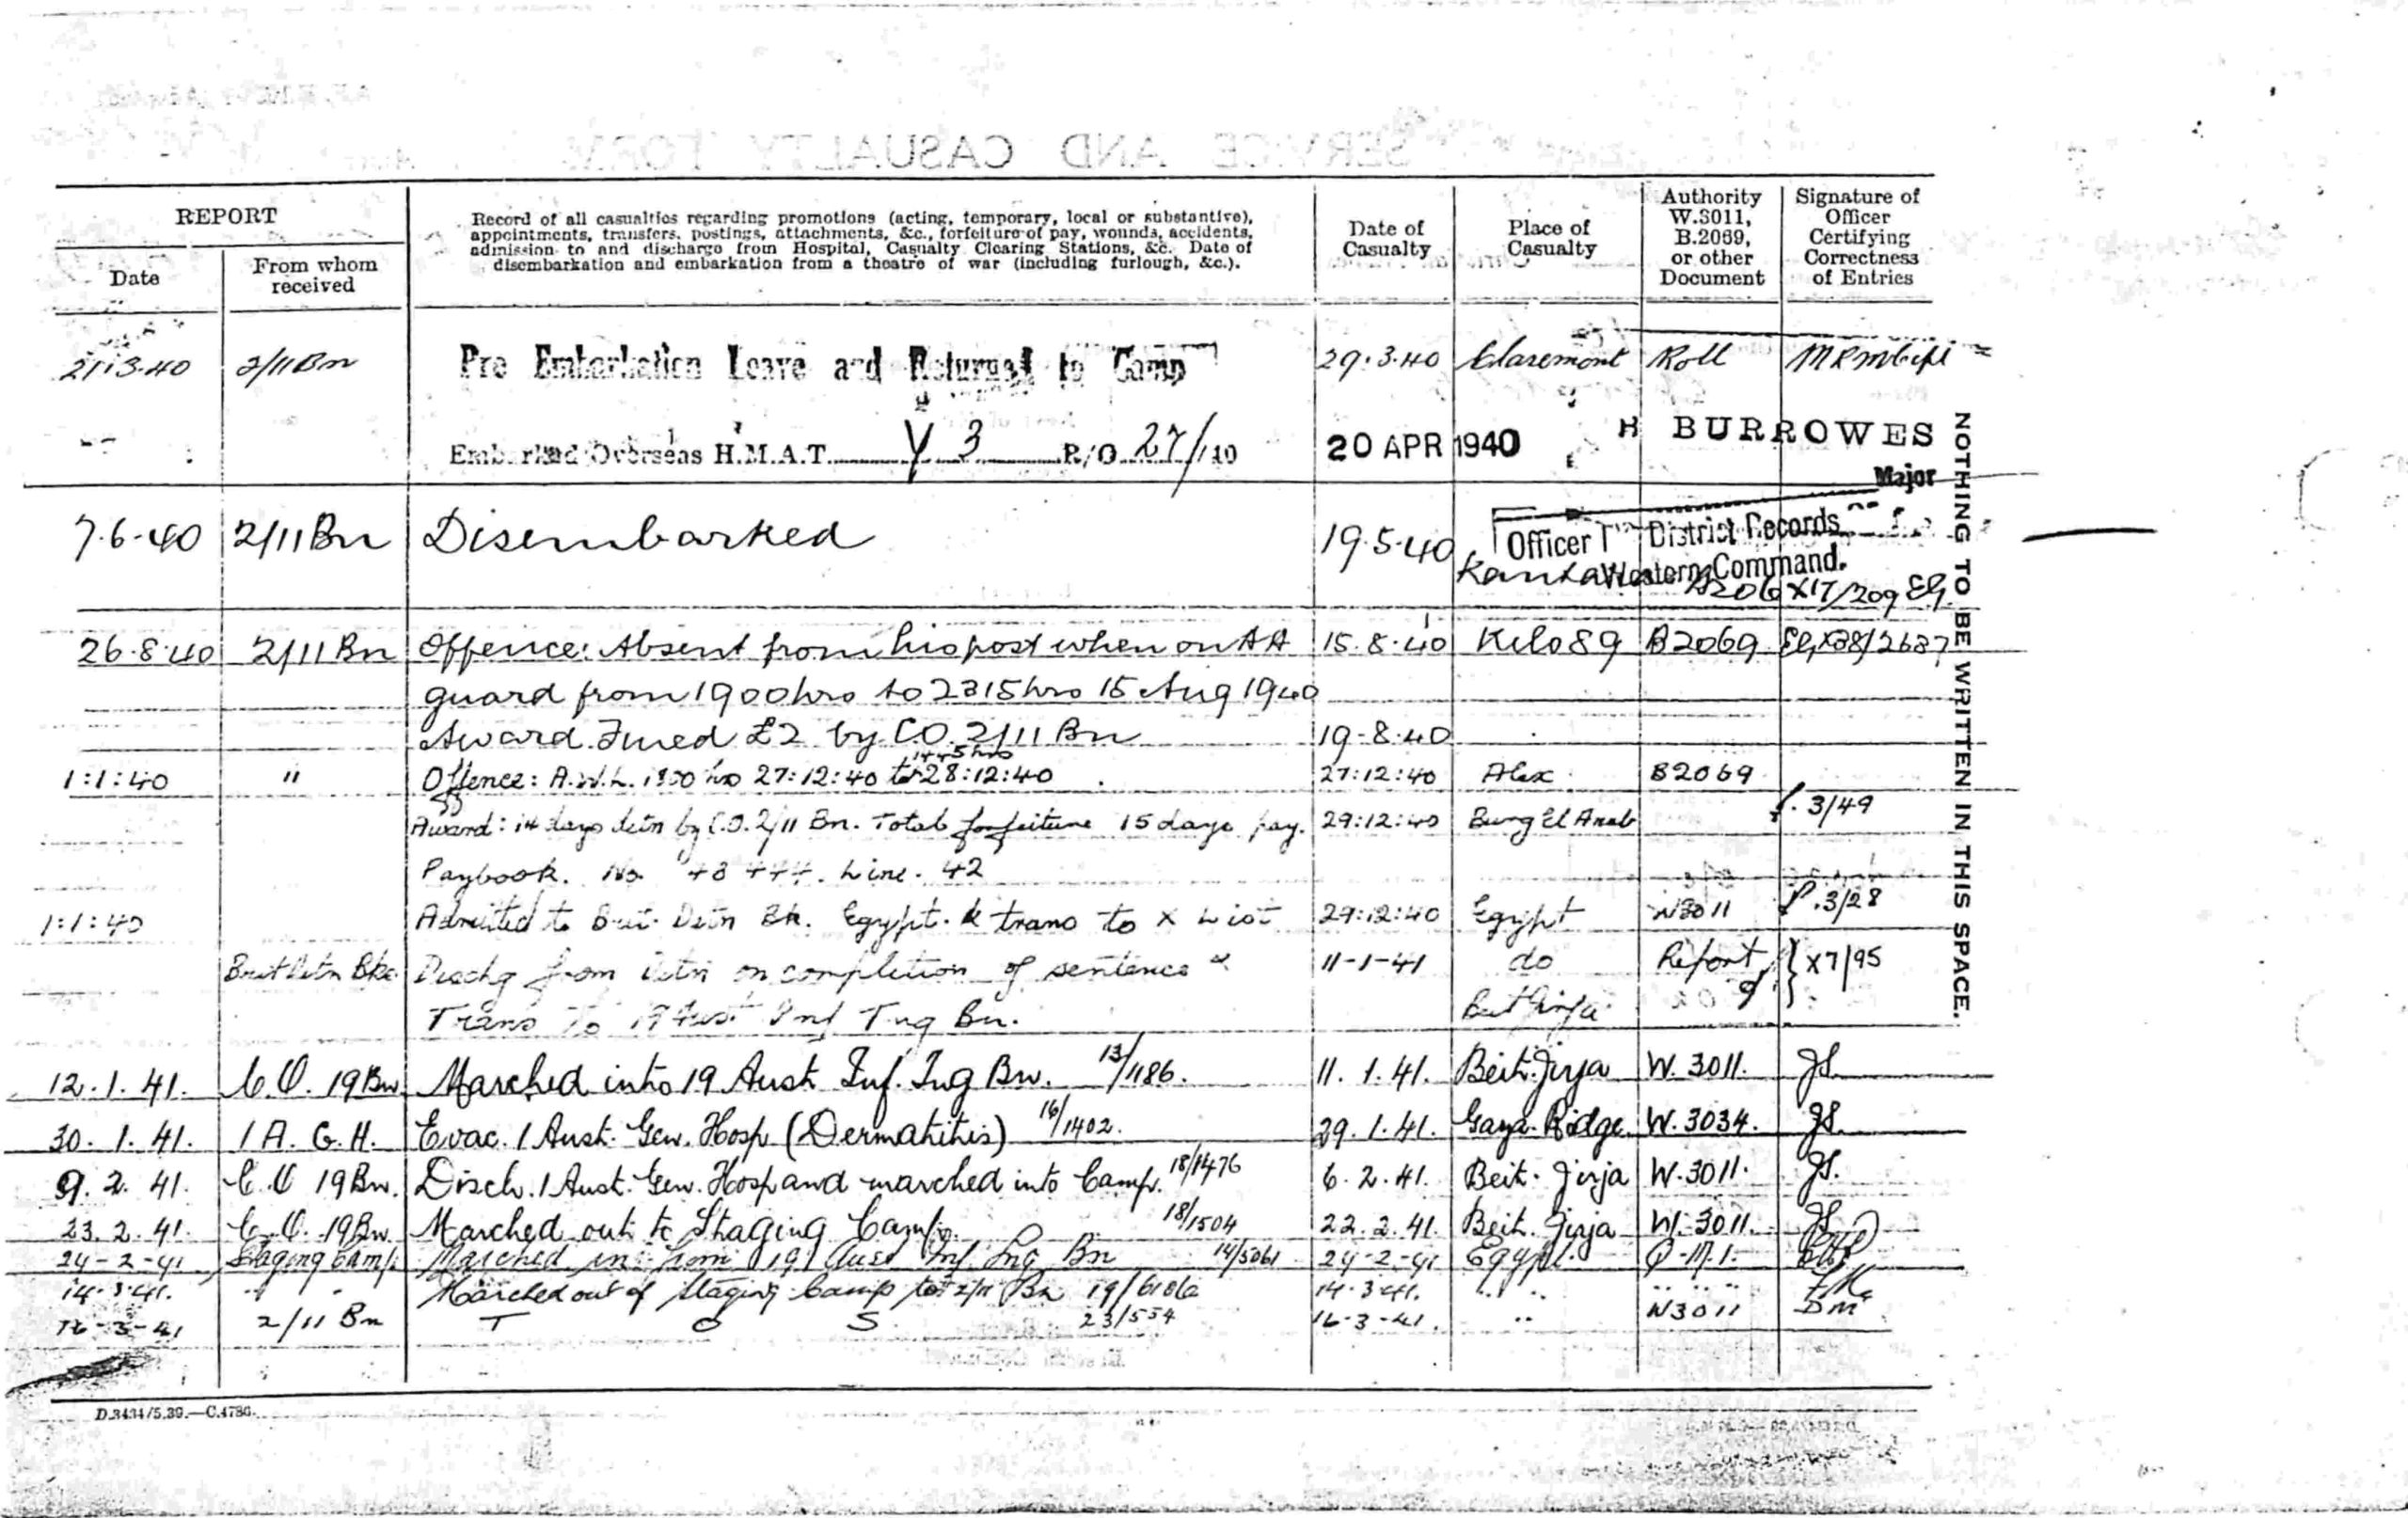 SERVICE AND CASUALTY FORM
REPORT
Date
From whom
received
Record of all casualties regarding promotions (acting, temporary, local or substantive),
appointments, transfers, postings, attachments, &c., forfeiture of pay, wounds, accidents,
admission to and discharge from Hospital, Casualty Clearing Stations, &c. Date of
disembarkation and embarkation from a theatre of war (including furlough, &c.).
Date of
Casualty
Place of
Casualty
Authority
W.3011,
B.2069,
or other
Document
Signature of
Officer
Certifying
Correctness
of Entries
21.3.40 2/11 Bn Pre Embarkation Leave and Returned to Camp 29.3.40 Claremont Roll
Embarked Overseas H.M.A.T. Y 3 R/O 27/40 20 APR 1940 H BURROWES
Major
7.6.40 2/11 Bn Disembarked 19.5.40
Officer District Records
Western Command.
X17/209
26.8.40 2/11 Bn Offence: Absent from his post when on AA 15.8.40 Kilo 89 B2069 X38/2637
guard from 1900 hrs to 2315 hrs 15 Aug 1940
Award. Fined £2 by CO. 2/11 Bn 19-8-40
1445 hrs
1:1:40 " Offence: A.W.L. 1800 hrs 27:12:40 to 28:12:40 27:12:40 Alex. B2069
Award: 14 days detn by C.O. 2/11 Bn. Total forfeiture 15 days pay. 29:12:40 Burg El Arab 3/49
Paybook. No. Line. 42
1:1:40 Admitted to Brit. Detn Bk. Egypt. & trans to X List 29:12:40 Egypt W3011 P.3/28
Brit Detn Bks Dischg from Detn on completion of sentence & 11-1-41 do Report X7/95
Trans To 19 Aust Inf Tng Bn. Beit Jirja
12.1.41. C.O. 19 Bn. Marched into 19 Aust. Inf. Tng Bn. 13/1186. 11.1.41. Beit Jirja W.3011. JS.
30.1.41. 1 A.G.H. Evac. 1 Aust. Gen. Hosp (Dermatitis) 16/1402. 29.1.41. Gaza Ridge. W.3034. JS.
9.2.41. C.O 19 Bn. Disch. 1 Aust. Gen. Hosp and marched into Camp. 18/1476 6.2.41. Beit Jirja W.3011. JS.
23.2.41. C.O. 19 Bn. Marched out to Staging Camp. 18/1504 22.2.41. Beit Jirja W.3011. JS
24-2-41 Staging Camp Marched in from 19 Aust Inf Tng Bn 14/5061 24-2-41 Egypt
14.3.41. " " Marched out of Staging Camp to 2/11 Bn 14.3.41. " "
16-3-41 2/11 Bn T O S 23/554 16-3-41. " W3011 DM
D.3434/5.39.—C.4786.
NOTHING TO BE WRITTEN IN THIS SPACE.